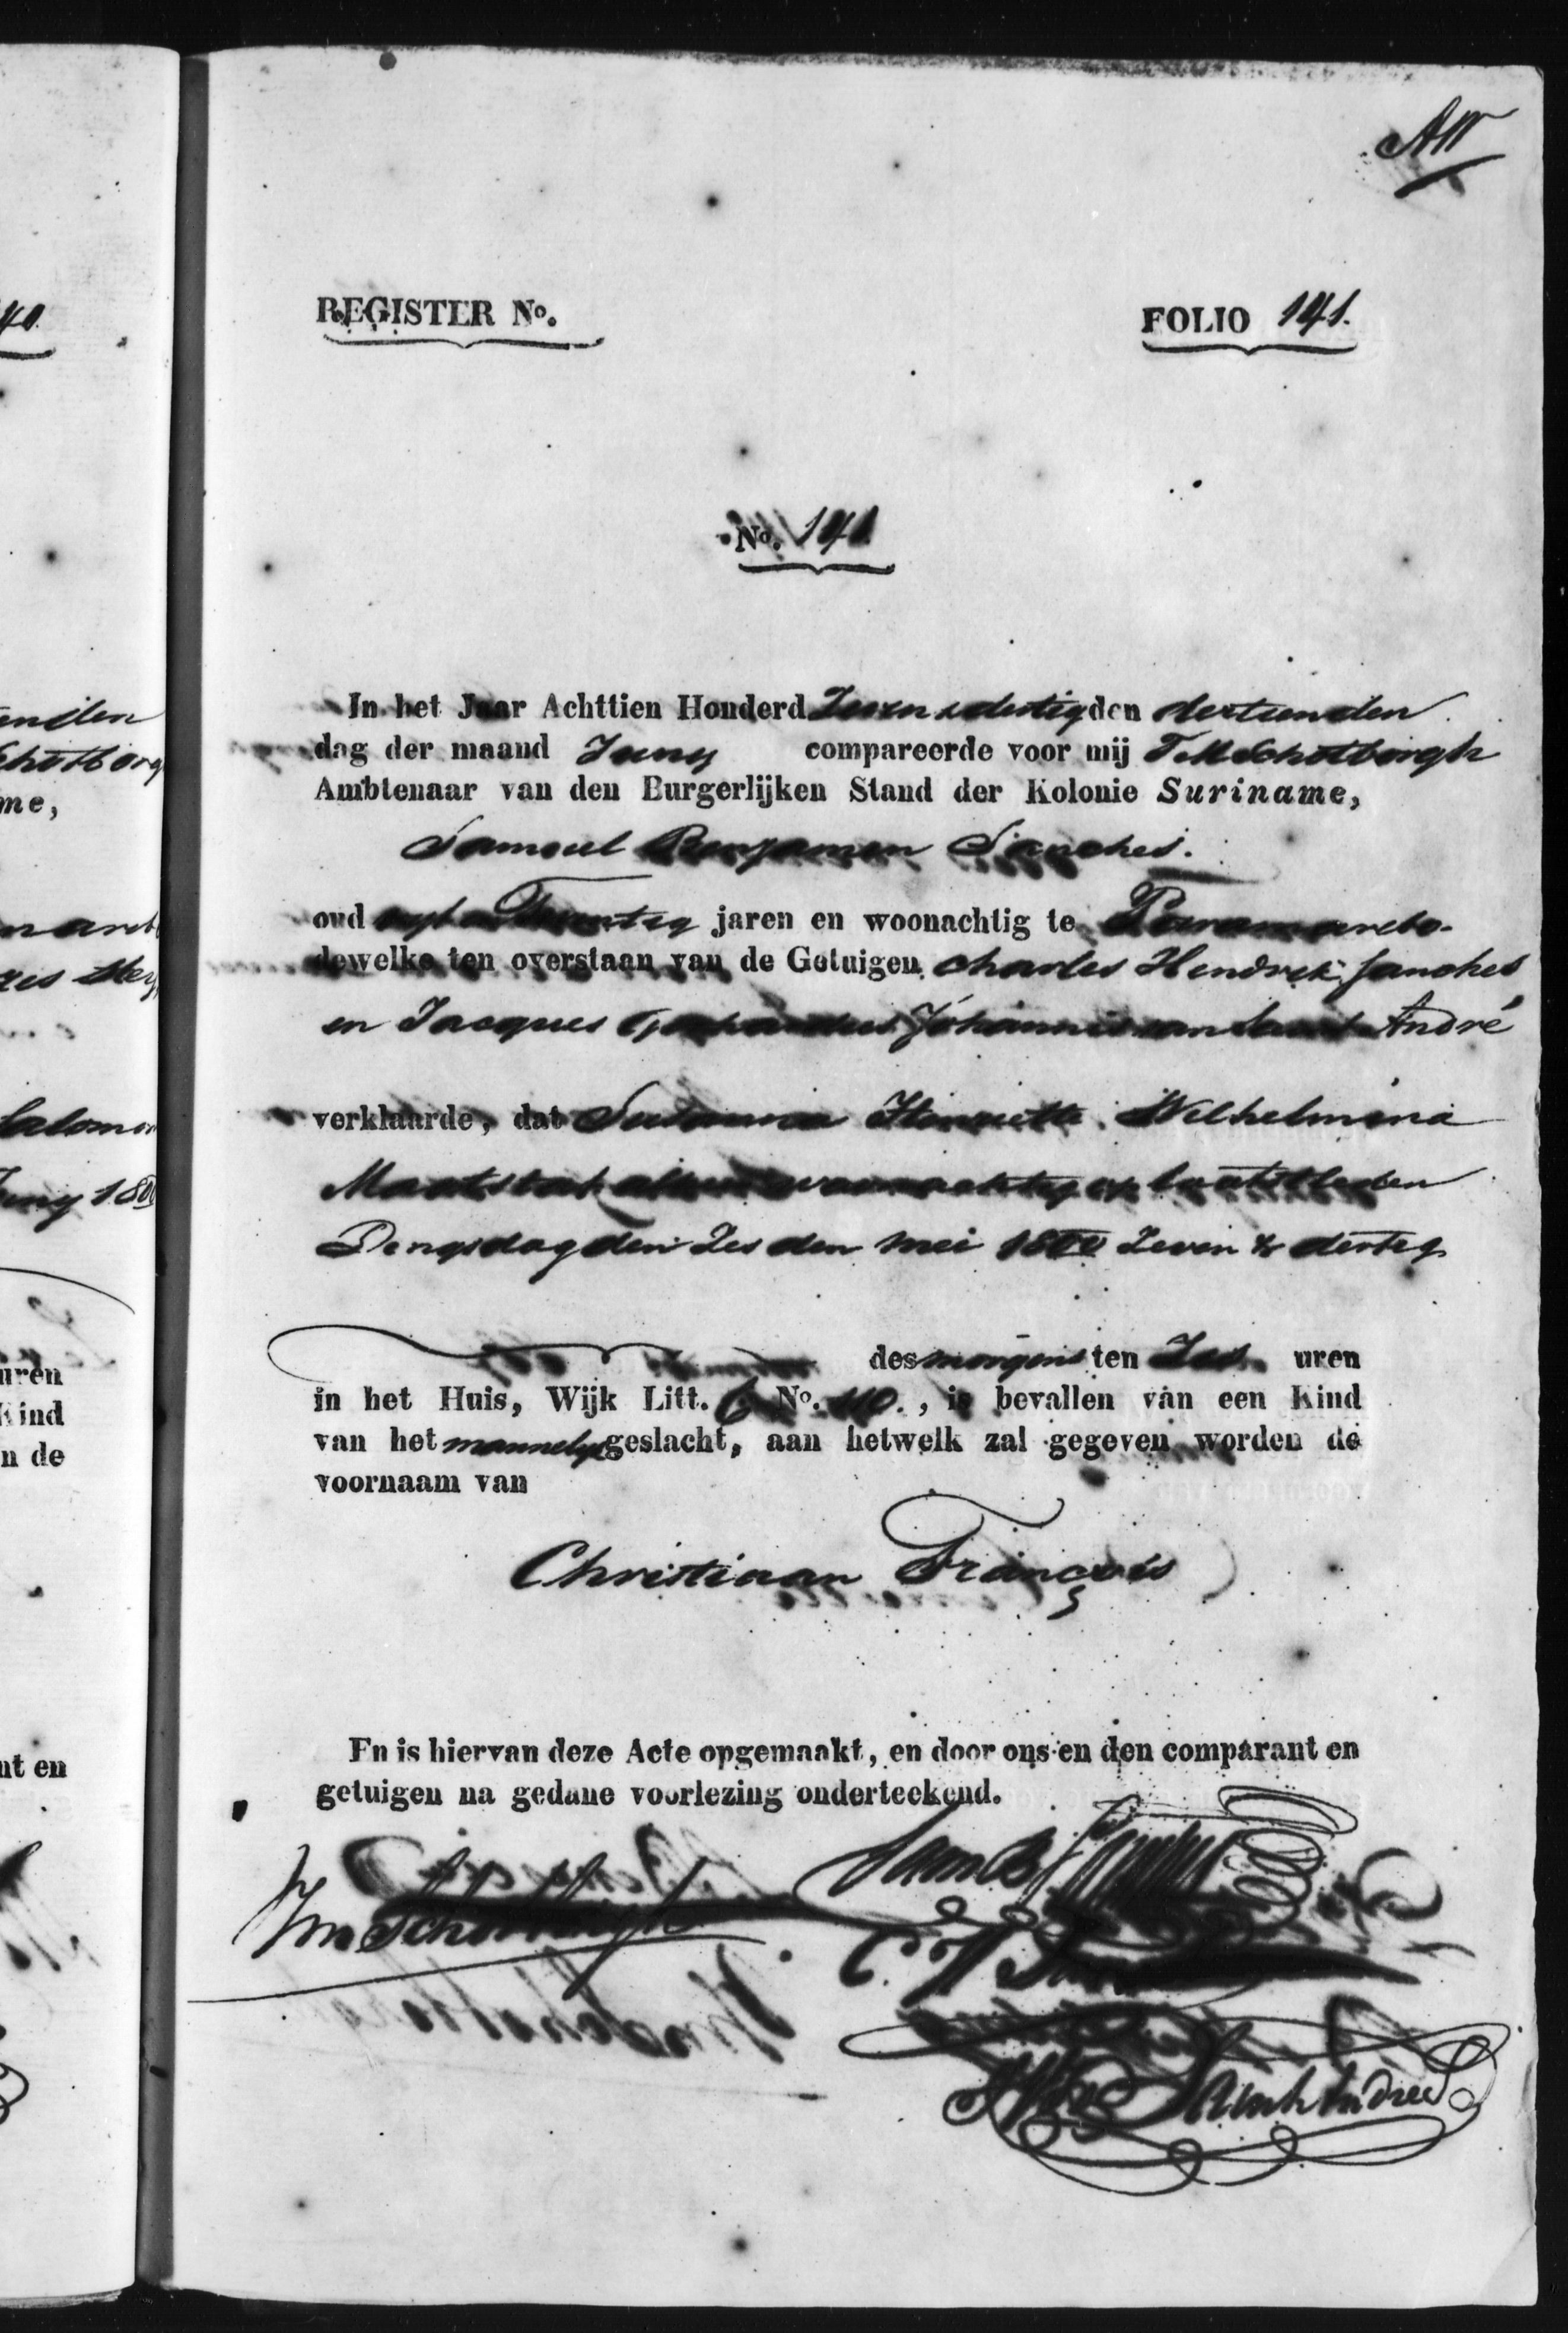 REGISTER No.
FOLIO 141.
No. 141
In het Jaar Achttien Honderd Zeven & dertig den dertienden
dag der maand Juny compareerde voor mij Schotborgh
Ambtenaar van den Burgerlijken Stand der Kolonie Suriname,
Samuel Benjamin Sanches.
oud Twintig jaren en woonachtig te Paramaribo.
dewelke ten overstaan van de Getuigen Charles Hendrik Sanches
en Jacques Johannis van Saint André
verklaarde, dat Susanna Henriette Wilhelmina
op laatstleden
Dingsdag den Zesden Mei 1800 Zeven & dertig
des morgens ten Zes uren
in het Huis, Wijk Litt. No. 110., is bevallen van een Kind
van het mannelyk geslacht, aan hetwelk zal gegeven worden de
voornaam van
Christiaan François
En is hiervan deze Acte opgemaakt, en door ons en den comparant en
getuigen na gedane voorlezing onderteekend.
Sam B
Schotborgh
C. H
Saint André
40
enden
Schotborg
me,
Salomon
Juny 180
uren
Kind
n de
nt en